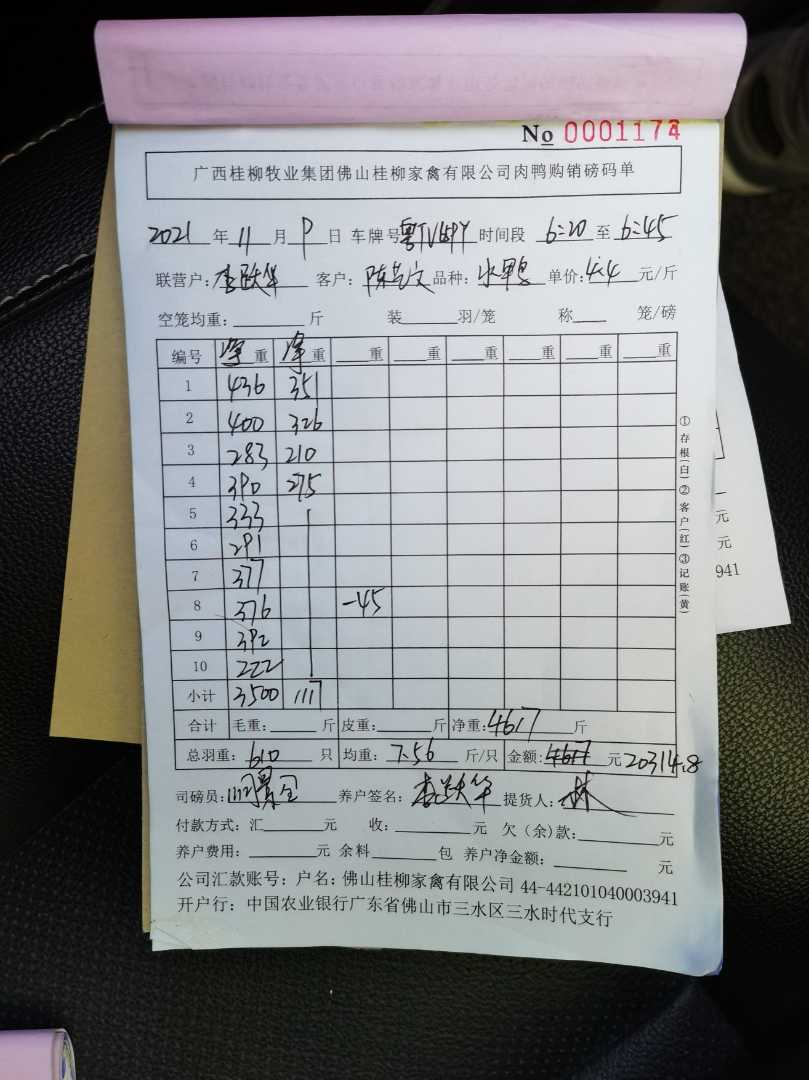 No 0001174
广西桂柳牧业集团佛山桂柳家禽有限公司肉鸭购销磅码单
2021 年 11 月 9 日 车牌号 时间段 6:20 至 6:45
联营户: 李跃华 客户: 品种: 水鸭 单价: 4.4 元/斤
空笼均重: 斤 装 羽/笼 称 笼/磅
编号 净重 净重 重 重 重 重 重 重
1 436 351
2 400 326
3 283 210
4 390 275
5 333
6 291
7 377
8 376 -45
9 392
10 222
小计 3500 1117
合计 毛重: 斤 皮重: 斤 净重: 4617 斤
总羽重: 610 只 均重: 7.56 斤/只 金额: 4617 元 20314.8
司磅员: 养户签名: 李跃华 提货人: 林
付款方式: 汇 元 收: 元 欠(余)款: 元
养户费用: 元 余料 包 养户净金额: 元
公司汇款账号: 户名: 佛山桂柳家禽有限公司 44-442101040003941
开户行: 中国农业银行广东省佛山市三水区三水时代支行
①存根(白)②客户(红)③记账(黄)
元
元
941